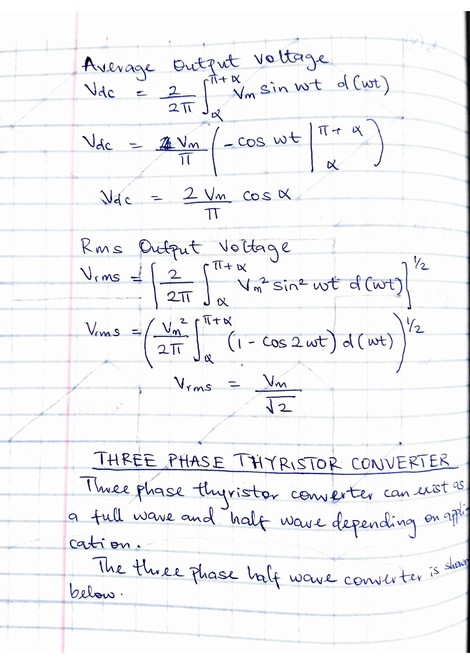 Average Output Voltage
Vdc = 2/2π ∫_α^(π+α) Vm sin wt d(wt)
Vdc = Vm/π ( -cos wt | π+α α )
Vdc = 2Vm/π cos α
Rms Output Voltage
Vrms = [ 2/2π ∫_α^(π+α) Vm² sin² wt d(wt) ]^1/2
Vrms = ( Vm²/2π ∫_α^(π+α) (1 - cos 2wt) d(wt) )^1/2
Vrms = Vm/√2
THREE PHASE THYRISTOR CONVERTER
Three phase thyristor converter can exist as
a full wave and half wave depending on appli
cation.
The three phase half wave converter is shown
below.